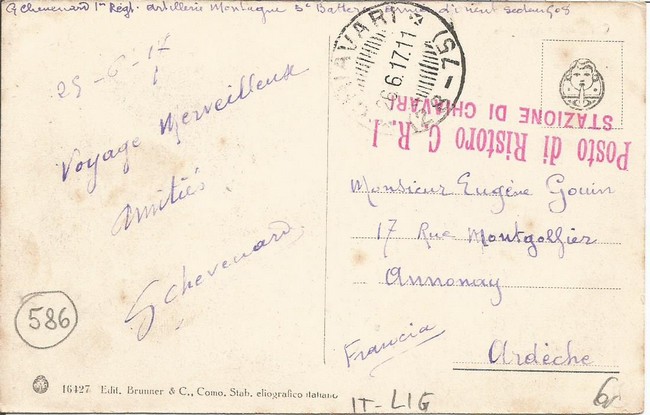 G Chevenard 1er Régt. artillerie Montagne 5e Batterie armée d'orient
25-6-17
Voyage Merveilleux
Amitiés
G Chevenard
586
CHIAVARI
26.6.17.11
Posto di Ristoro C.R.I
STAZIONE DI CHIAVARI
Monsieur Eugène Gouin
17 Rue Montgolfier
Annonay
Ardèche
Francia
16427 Edit. Brunner & C., Como. Stab. eliografico italiano
IT-LIG